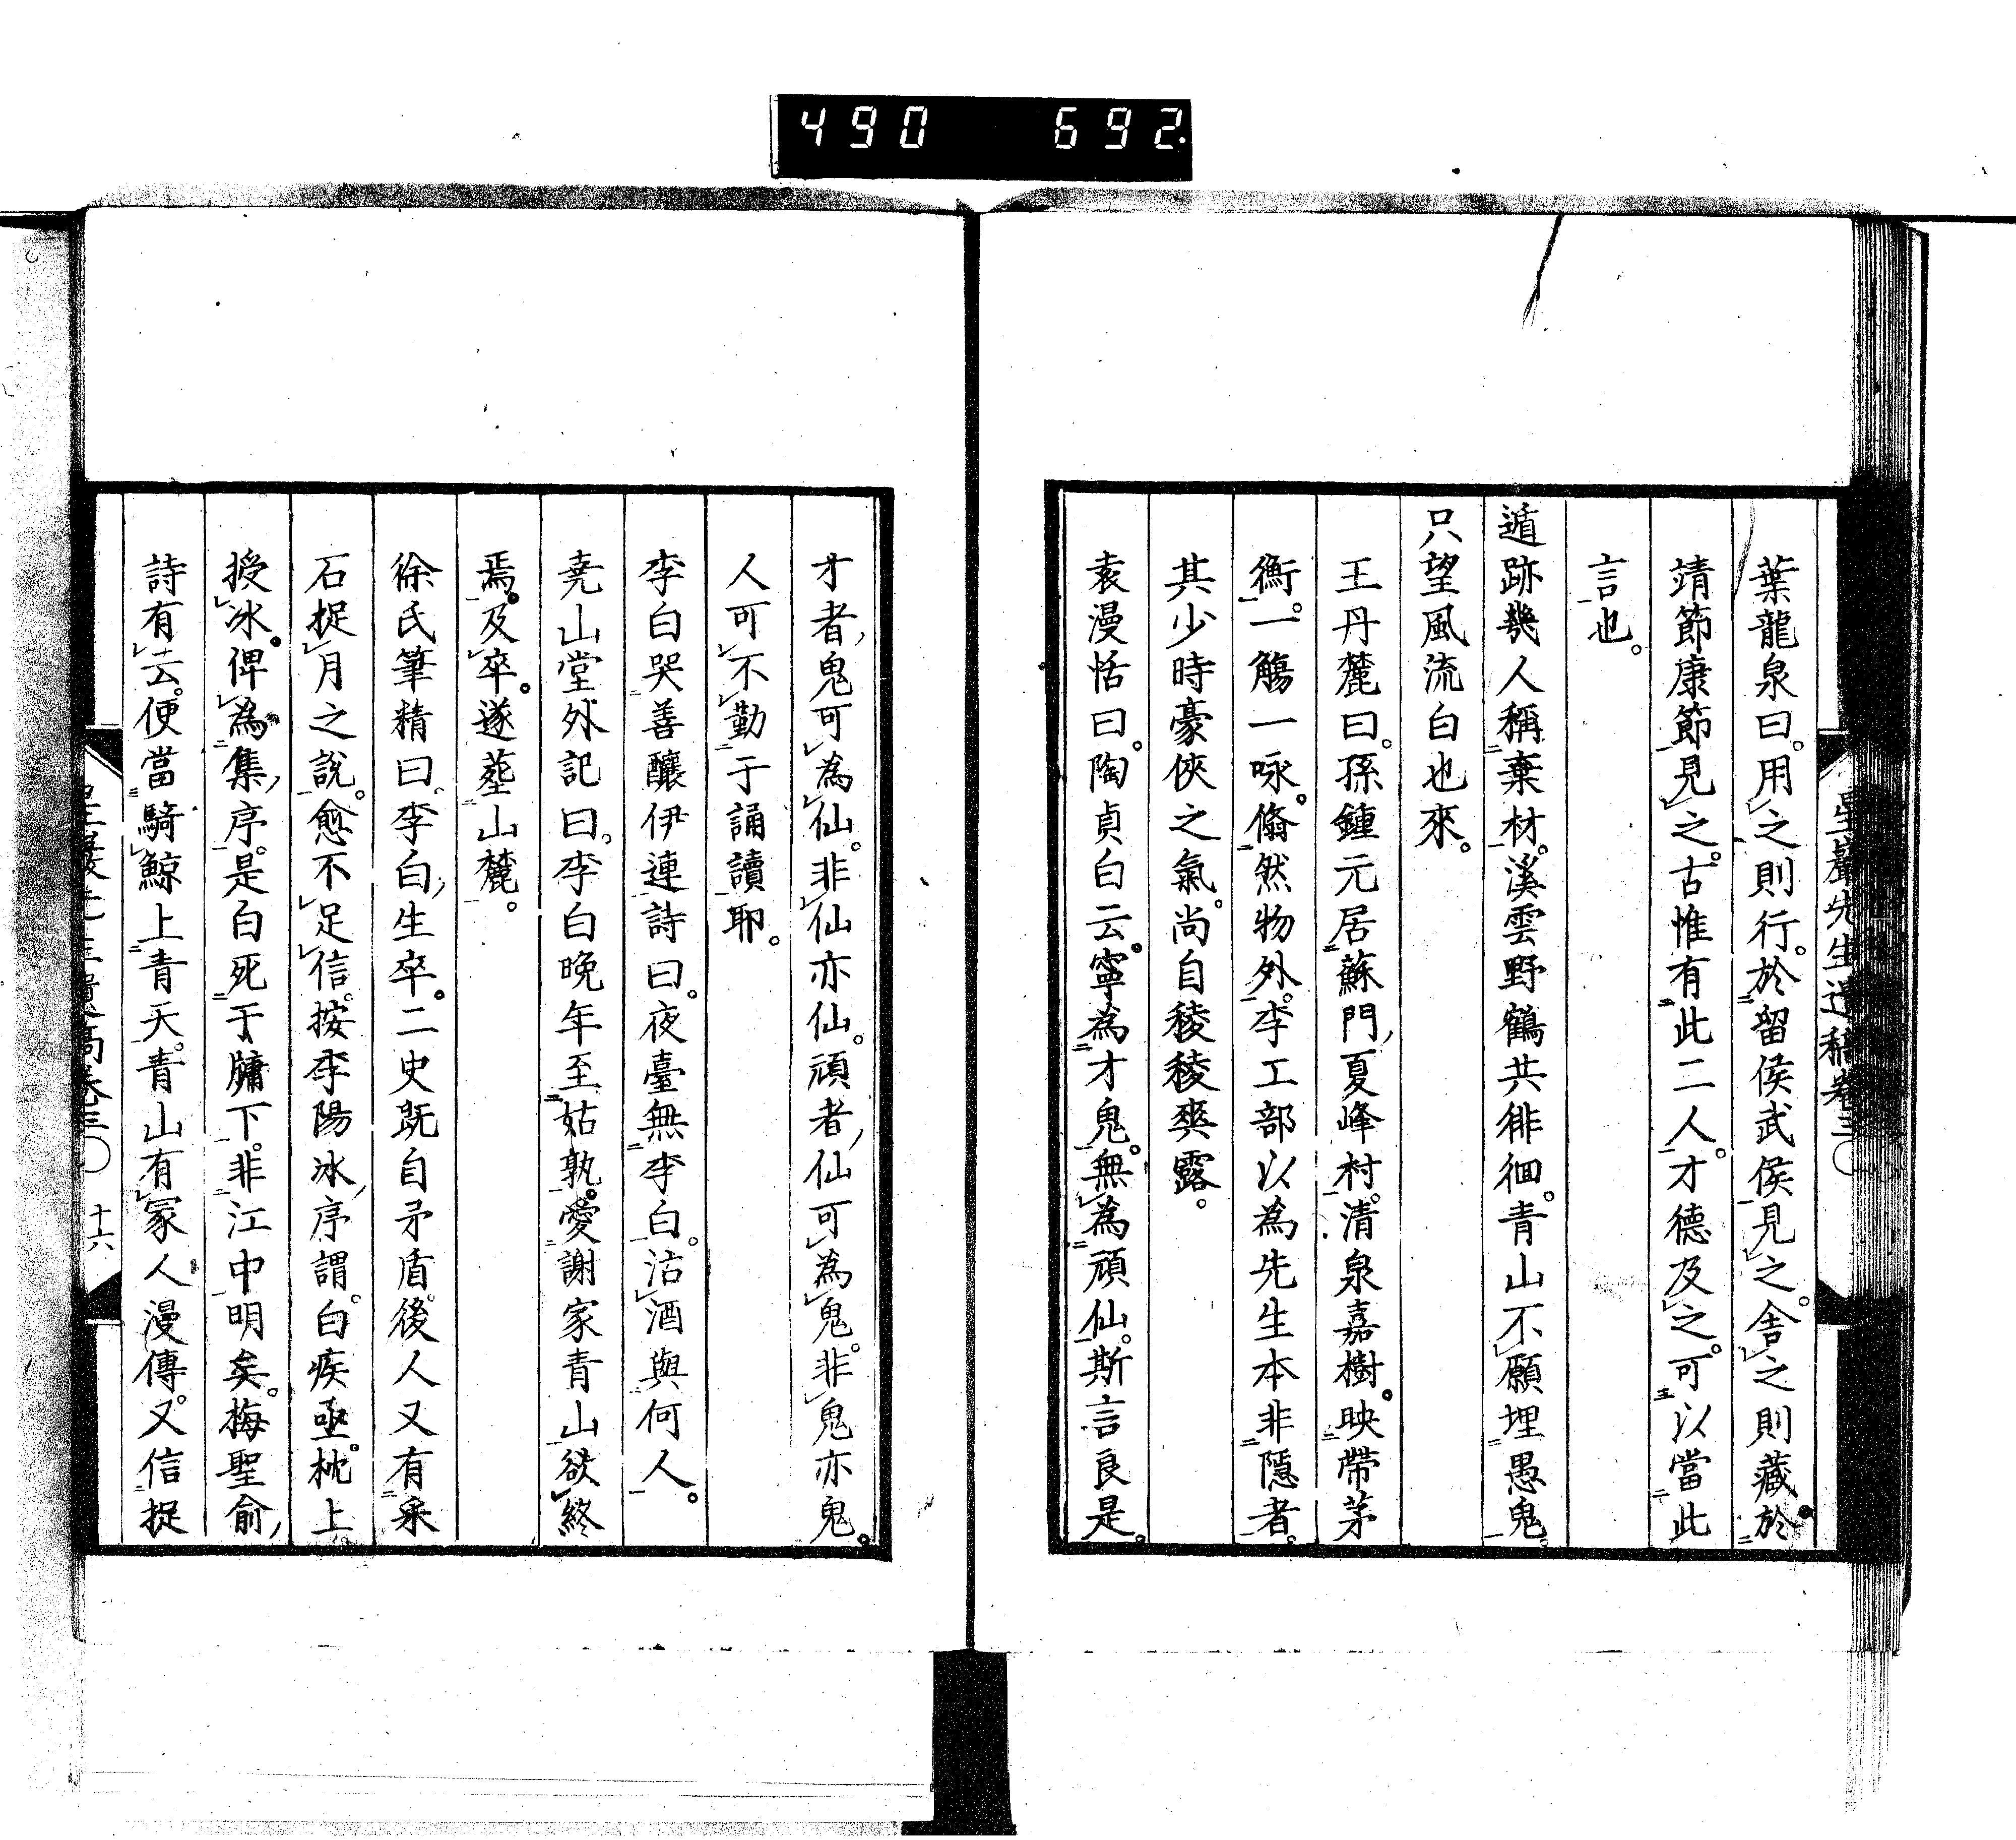 490 692
星巖先生遺稿卷三
葉龍泉曰。用之則行。於留侯武侯見之。舎之則藏。於
靖節康節見之。古惟有此二人。才德及之。可以當此
言也。
遁跡幾人稱棄材。溪雲野鶴共徘徊。青山不願埋愚鬼。
只望風流白也來。
王丹麓曰。孫鍾元居蘇門夏峰村。清泉嘉樹。映帶茅
衡。一觴一咏。翛然物外。李工部以為先生本非隱者。
其少時豪俠之氣。尚自稜稜爽露。
袁漫恬曰。陶貞白云。寧為才鬼。無為頑仙。斯言良是。
才者鬼可為仙。非仙亦仙。頑者仙可為鬼。非鬼亦鬼。
人可不勤于誦讀耶。
李白哭善釀伊連詩曰。夜臺無李白。沽酒與何人。
堯山堂外記曰。李白晚年至姑孰。愛謝家青山欲終
焉。及卒。遂塟山麓。
徐氏筆精曰。李白生卒。二史既自矛盾。後人又有采
石捉月之說。愈不足信。按李陽冰序謂。白疾亟。枕上
授冰。俾為集序。是白死于牖下。非江中明矣。梅聖俞
詩有云。便當騎鯨上青天。青山有冢人漫傳。又信捉
星巖先生遺稿卷三 十六